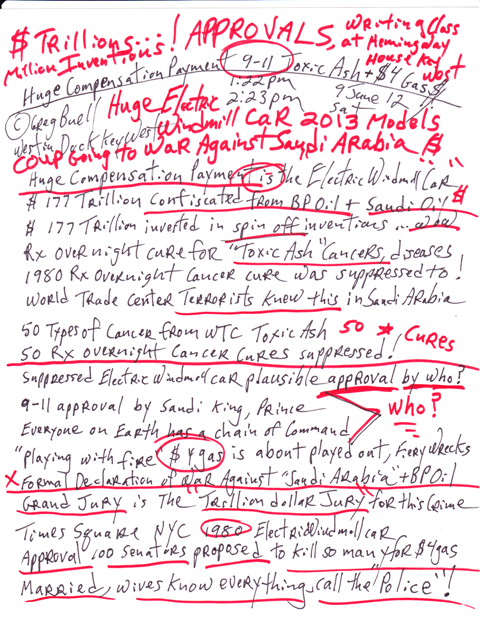 $ Trillions...! APPROVALS,
Million Inventions!
Writing Class
at Hemingway
House Key
West
Huge Compensation Payment 9-11 Toxic Ash + $4 Gas
1:22pm
2:23pm
9 June 12
Sat
© Greg Buell
Westin Duck Key West
Huge Electric
Windmill Car 2013 Models
Coup Going to War Against Saudi Arabia $
Huge Compensation Payment is the Electric Windmill Car
$ 177 Trillion confiscated from BP Oil + Saudi Oil $
$ 177 Trillion invested in spin off inventions ... wow
Rx overnight cure for "Toxic Ash" Cancers, diseases
1980 Rx Overnight Cancer cure was suppressed to!
World Trade Center Terrorists knew this in Saudi Arabia
50 Types of Cancer from WTC Toxic Ash 50 * Cures
50 Rx overnight Cancer Cures suppressed!
Suppressed Electric Windmill car plausible approval by who?
9-11 approval by Saudi King, Prince
who?
Everyone on Earth has a chain of Command
"Playing with fire" $4 gas is about played out, Fiery Wrecks
X Formal Declaration of War Against "Saudi Arabia" + BP Oil
Grand Jury is the "Trillion dollar Jury" for this Crime
Times Square NYC 1980 Electric Windmill car
Approval 100 Senators proposed to kill so many for $4 gas
Married, wives know everything, call the "Police"!